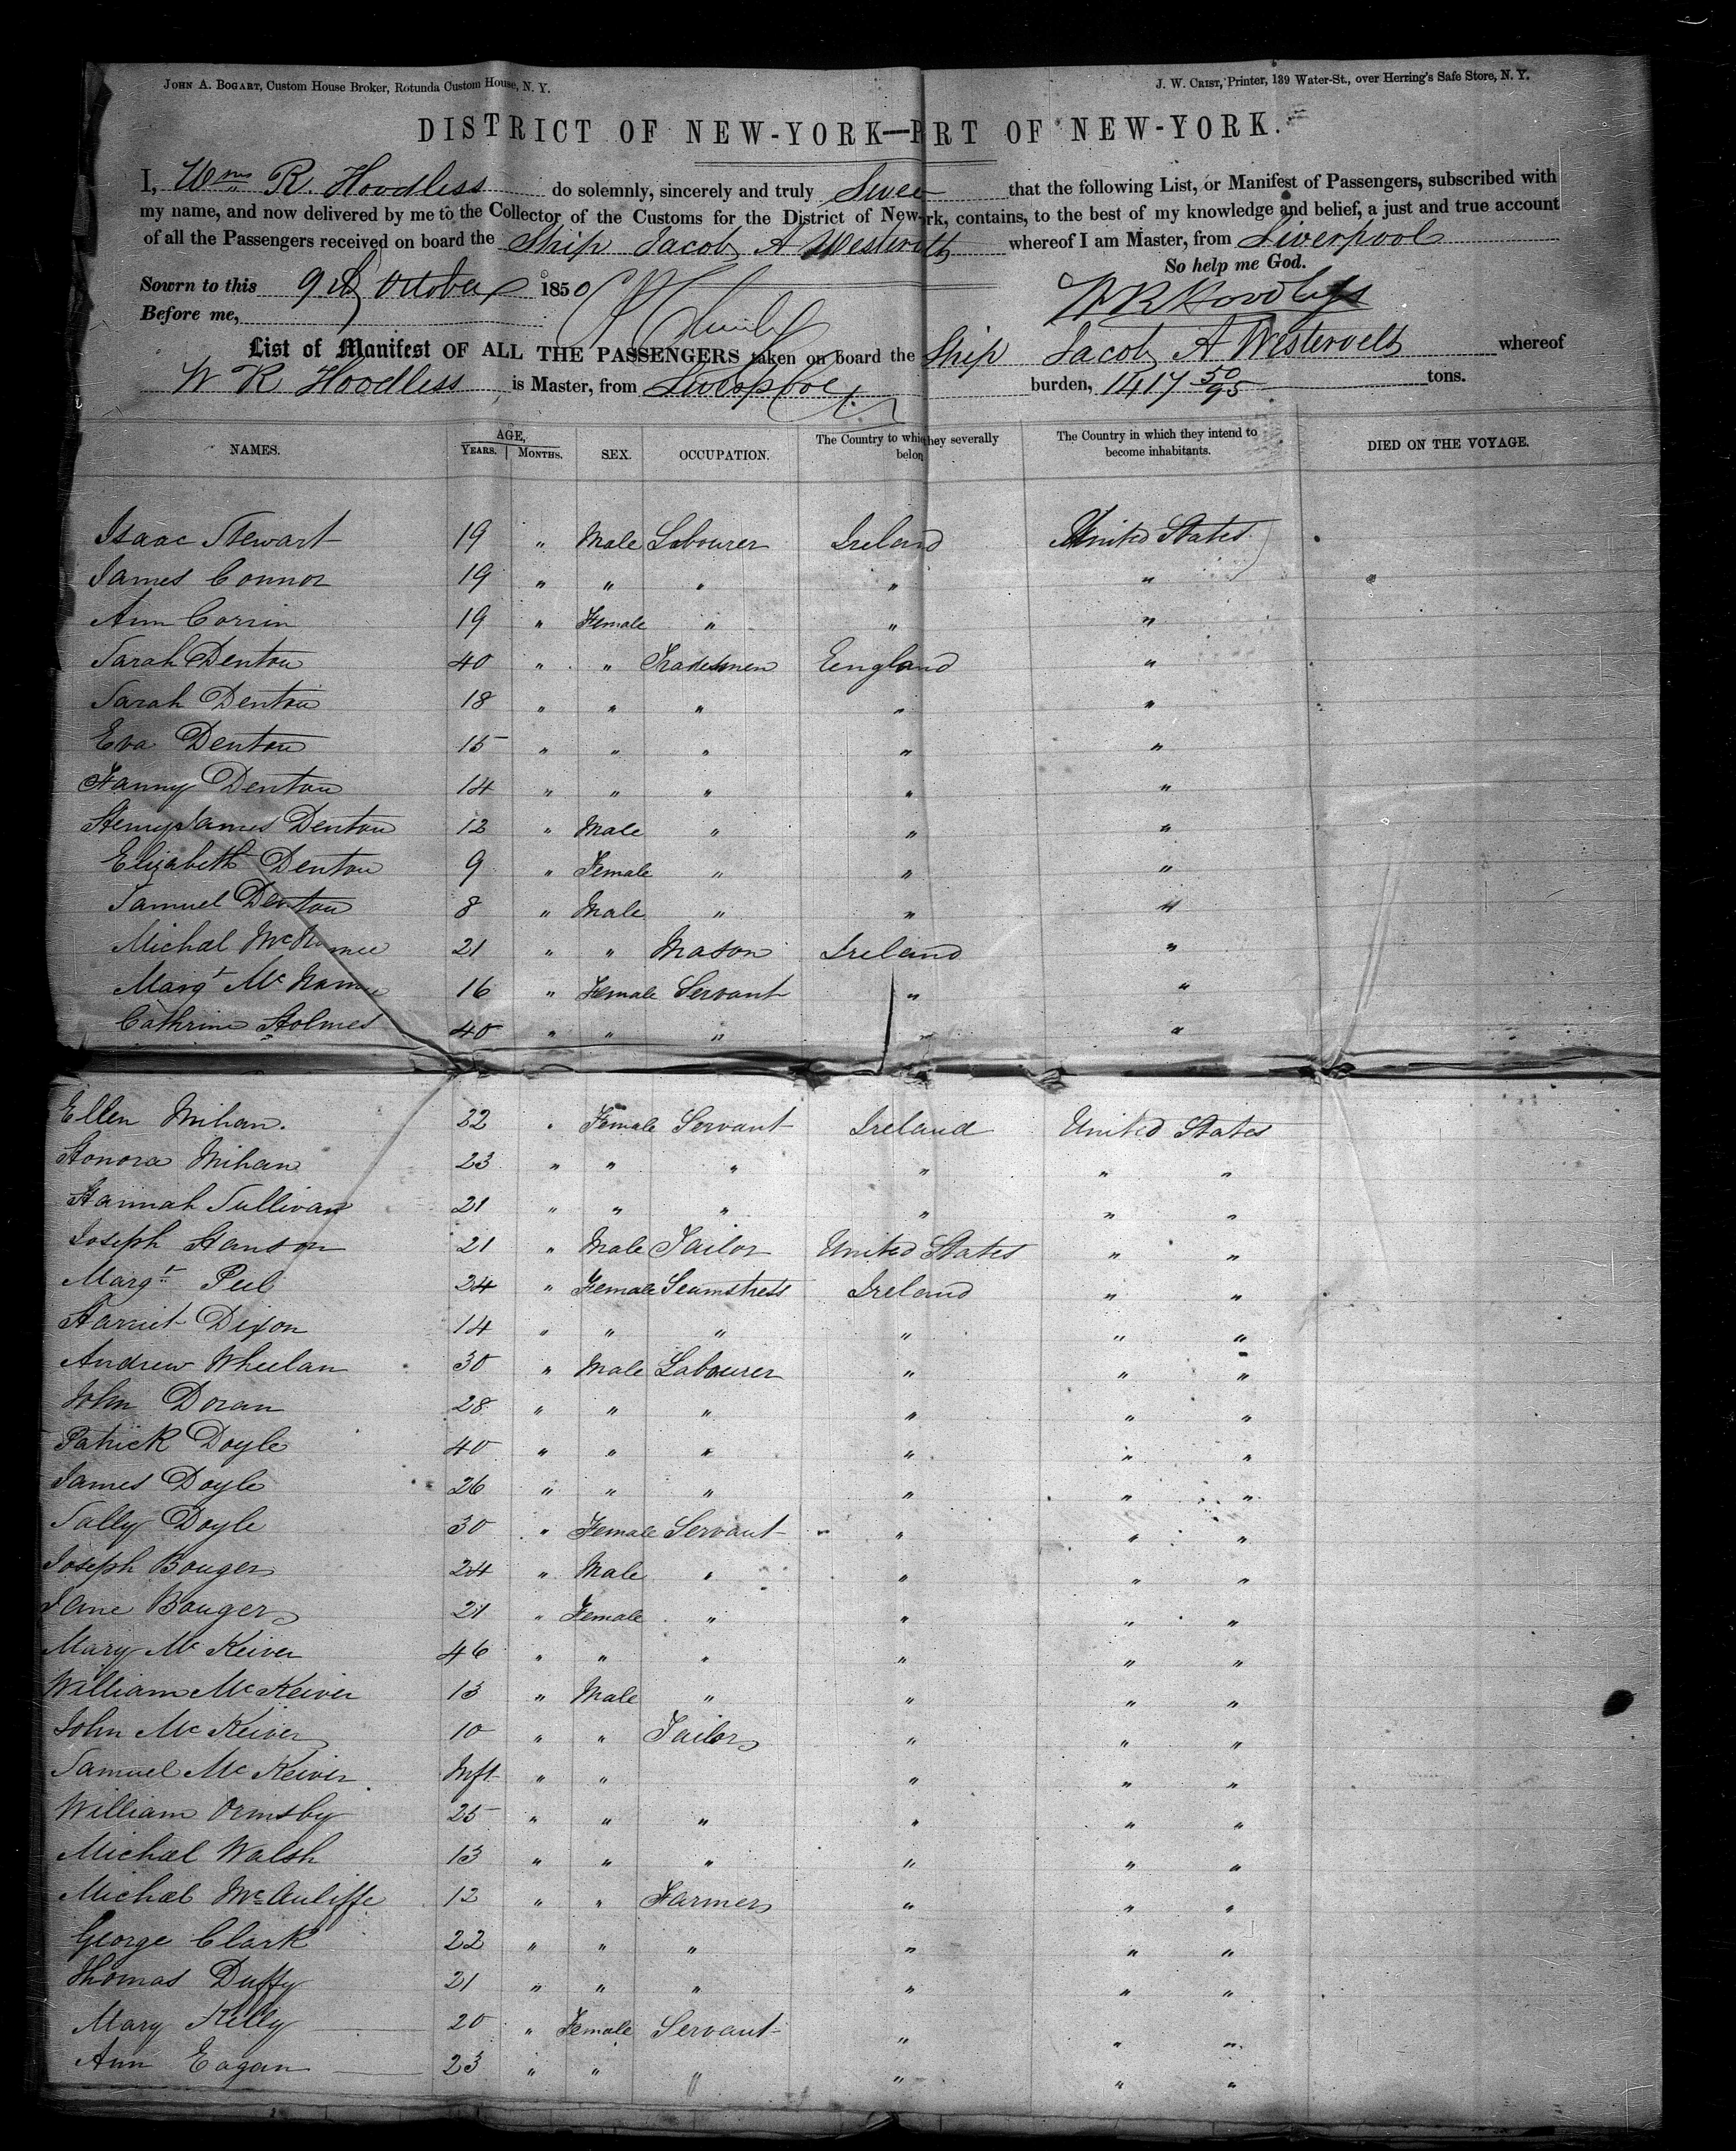 JOHN A. BOGART, Custom House Broker, Rotunda Custom House, N. Y.
J. W. CRIST, Printer, 139 Water-St., over Herring's Safe Store, N. Y.
DISTRICT OF NEW-YORK—PRT OF NEW-YORK.
I, Wms R. Hoodless do solemnly, sincerely and truly Swear that the following List, or Manifest of Passengers, subscribed with
my name, and now delivered by me to the Collector of the Customs for the District of New-rk, contains, to the best of my knowledge and belief, a just and true account
of all the Passengers received on board the Ship Jacob A Westervelt whereof I am Master, from Liverpool
So help me God.
Sowrn to this 9th October 1850 W R Hoodless
Before me,
List of Manifest OF ALL THE PASSENGERS taken on board the Ship Jacob A Westervelt whereof
W R Hoodless is Master, from Liverpool burden, 1417 50/95 tons.
NAMES. AGE, YEARS. MONTHS. SEX. OCCUPATION. The Country to whic they severally belon The Country in which they intend to become inhabitants. DIED ON THE VOYAGE.
Isaac Stewart 19 " Male Labourer Ireland United States
James Connor 19 " " " " "
Ann Corrin 19 " Female " " "
Sarah Denton 40 " " Tradesmen Eengland "
Sarah Denton 18 " " " " "
Eva Denton 15 " " " " "
Fanny Denton 14 " " " " "
Henry James Denton 12 " Male " " "
Elizabeth Denton 9 " Female " " "
Samuel Denton 8 " Male " " "
Michal 21 " " Mason Ireland "
Margt McName 16 " Female Servant " "
Cathrine Holmes 40 " " " " "
Ellen Mihan. 22 " Female Servant Ireland United States
Honora Mihan 23 " " " " " "
Hannah Sullivan 21 " " " " " "
Joseph Hanson 21 " Male Tailor United States " "
Margt Peel 24 " Female Seamstress Ireland " "
Harriet Dixon 14 " " " " " "
Andrew Wheelan 30 " Male Labourer " " "
John Doran 28 " " " " " "
Patrick Doyle 40 " " " " " "
James Doyle 26 " " " " " "
Sally Doyle 30 " Female Servant " " "
Joseph Bouger 24 " Male " " " "
Jane Bouger 21 " Female " " " "
Mary McKeiver 46 " " " " " "
William McKeiver 13 " Male " " " "
John McKeiver 10 " " Tailor " " "
Samuel McKeiver Inft " " " " "
William Ormsby 25 " " " " " "
Michael Walsh 13 " " " " " "
Michael McAuliffe 12 " " Farmer " " "
George Clark 22 " " " " " "
Thomas Duffy 21 " " " " " "
Mary Kelly 20 " Female Servant " " "
Ann Eagan 23 " " " " " "